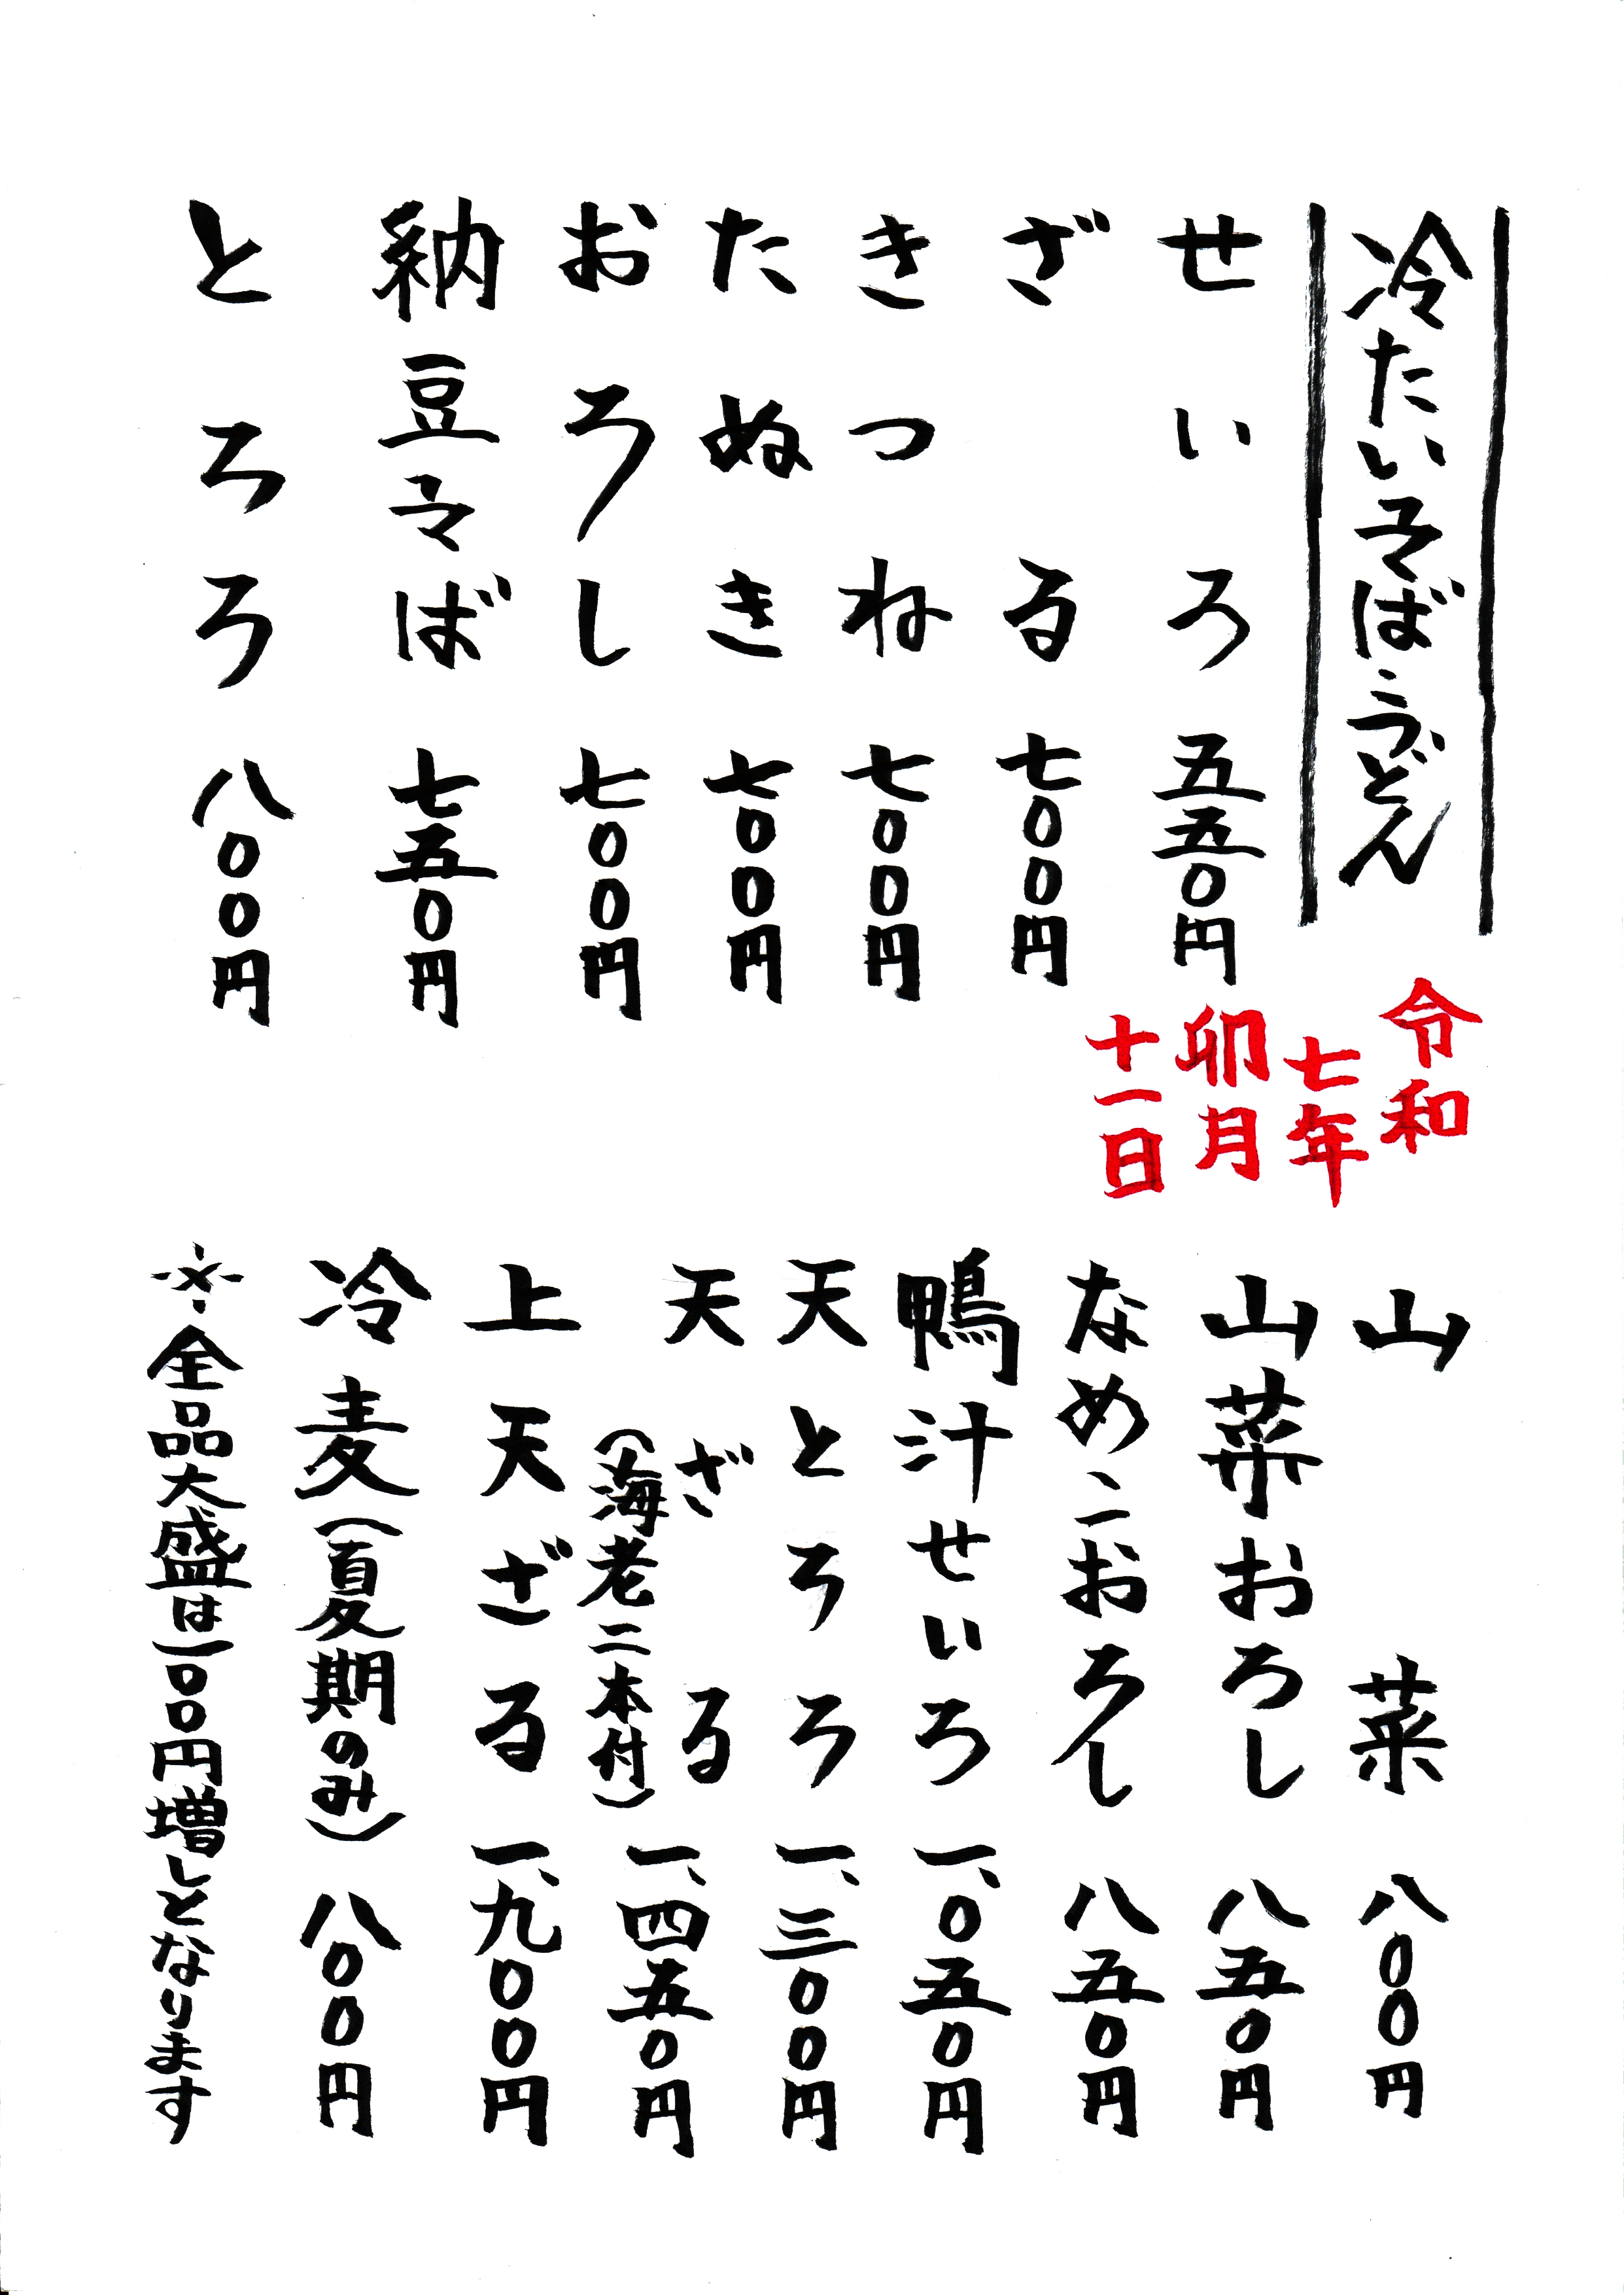 冷たいそば・うどん
せいろ 五五〇円
ざる 七〇〇円
きつね 七〇〇円
たぬき 七〇〇円
おろし 七〇〇円
納豆そば 七五〇円
とろろ 八〇〇円
令和
七年
卯月
十一日
山菜 八〇〇円
山菜おろし 八五〇円
なめこおろし 八五〇円
鴨汁せいろ 一、〇五〇円
天とろろ 一、三〇〇円
天ざる 一、四五〇円
(海老二本付)
上天ざる 一、九〇〇円
冷麦(夏期のみ) 八〇〇円
※全品大盛は一〇〇円増しとなります